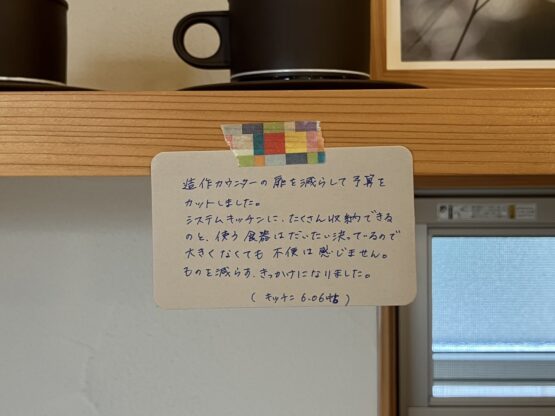 造作カウンターの扉を減らして予算を
カットしました。
システムキッチンに、たくさん収納できる
のと、使う食器はだいたい決っているので
大きくなくても不便は感じません。
ものを減らす、きっかけになりました。
(キッチン6.06帖)